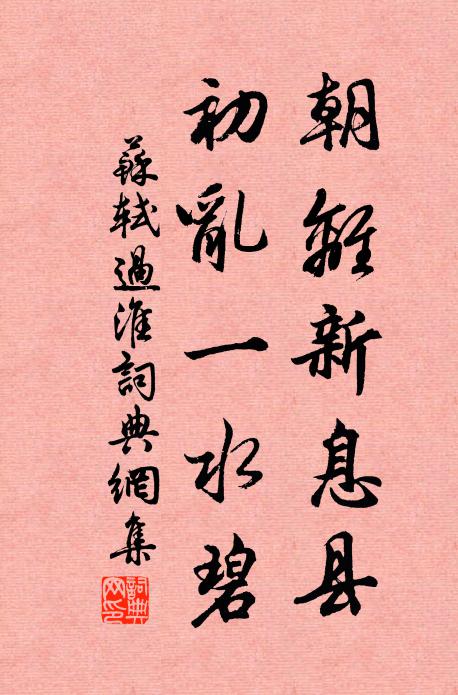 朝離新息县
初亂一水碧
蘇軾過淮詞典網集
詞典网印